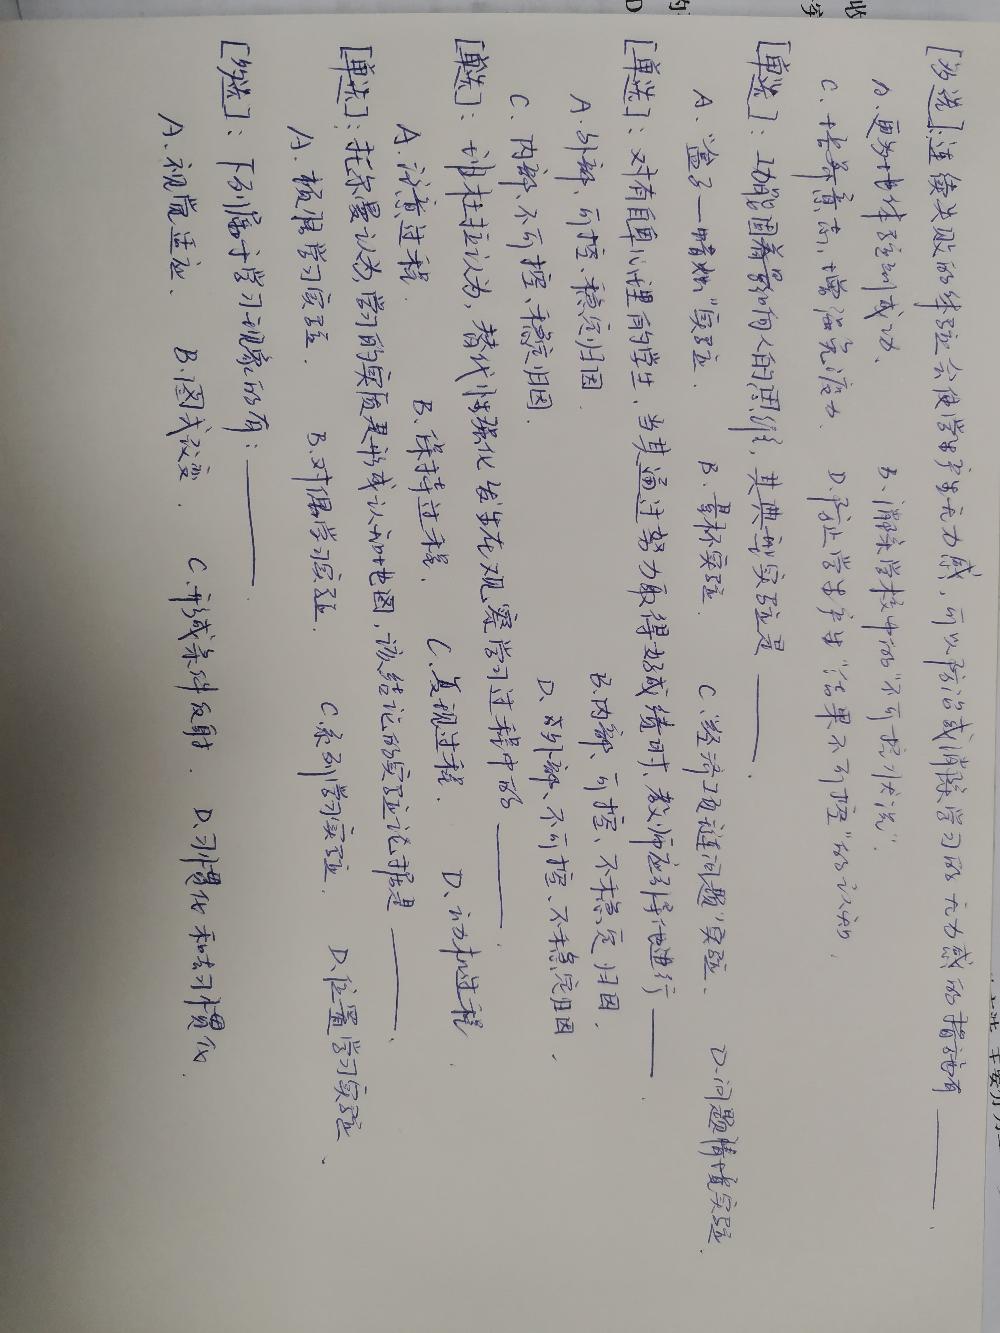 [多选]:连续失败的经验会使学生产生无力感,可以防治或消除学习的无力感的措施有______.
A.更多地体验到成功、 B.消除学校中的“不可控状况”.
C.培养意志,增强免疫力. D.防止学生产生“结果不可控”的认知.
[单选]:功能固着影响人的思维,其典型实验是______.
A.“盒子—蜡烛”实验. B.量杯实验. C.“经济项链问题”实验. D.问题情境实验.
[单选]:对有自卑心理的学生,当其通过努力取得好成绩时,教师应引导他进行______.
A.外部、可控、稳定归因 B.内部、可控、不稳定归因.
C.内部、不可控、稳定归因. D.外部、不可控、不稳定归因.
[单选]:班杜拉认为,替代性强化发生在观察学习过程中的______.
A.注意过程. B.保持过程. C.复现过程. D.动机过程.
[单选]:托尔曼认为,学习的实质是形成认知地图,该结论的实验证据是______.
A.极限学习实验. B.对偶学习实验. C.系列学习实验. D.位置学习实验.
[多选]:下列属于学习现象的有:______
A.视觉适应. B.图式改变. C.形成条件反射. D.习惯化和去习惯化.